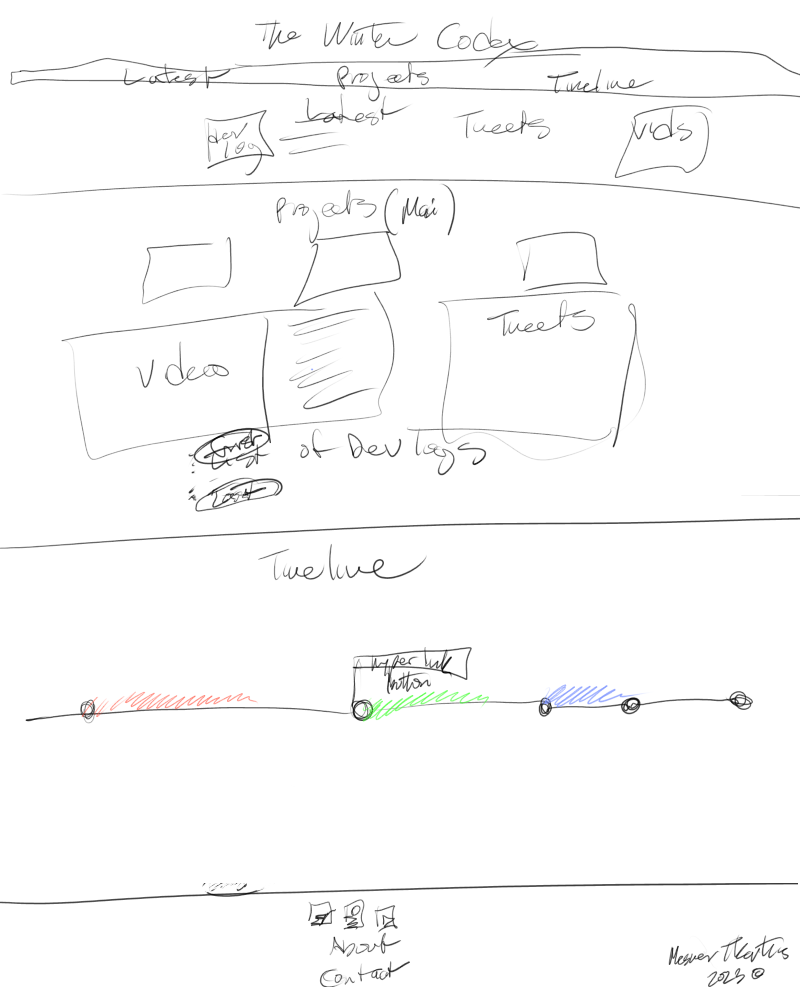 The Winter Codex
Latest Projects Timeline
Latest
Dev log
Tweets
Vids
Projects (Mai)
Video
Tweets
List of Dev logs
Timeline
Hyper link
button
About
Contact
2023 ©